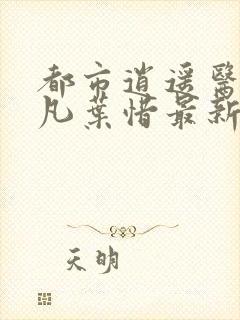 都市逍遥醫
凡葉惜最新
天明